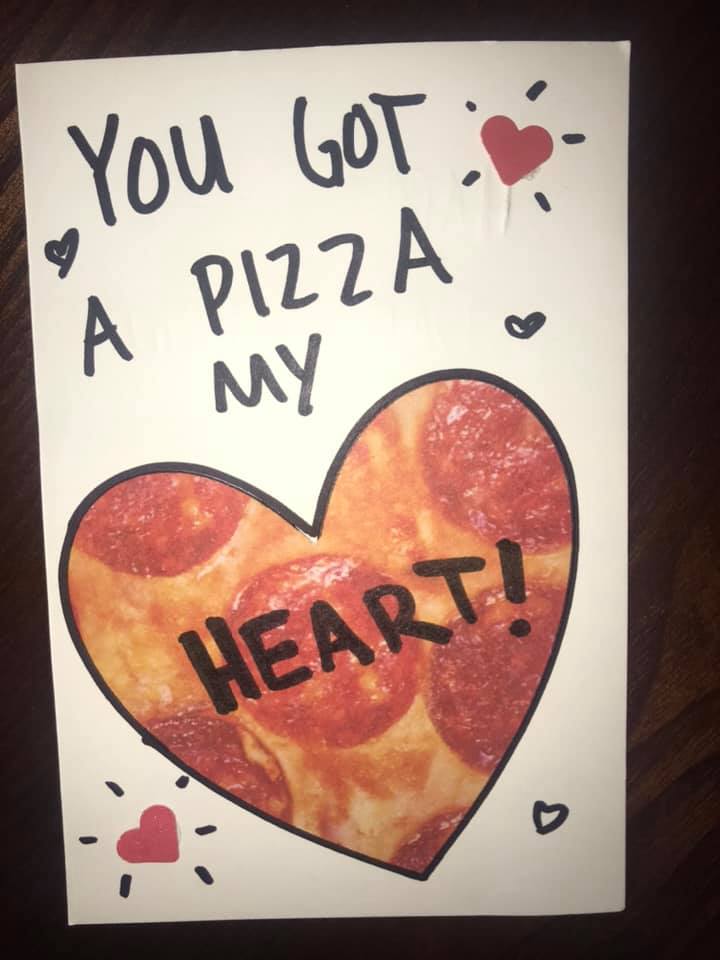 YOU GOT
A PIZZA
MY
HEART!